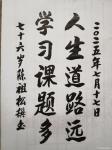 二〇二五年七月十七日
人生道路远
学习课题多
七十六岁陈祖松撰书